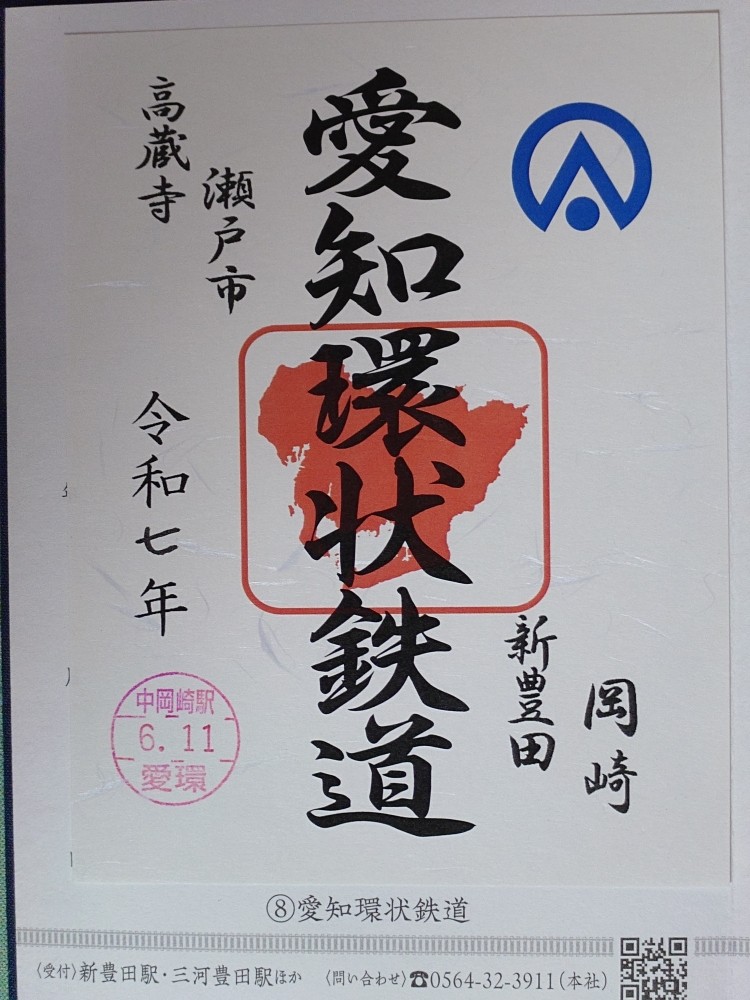 愛知環状鉄道
岡崎
新豊田
瀬戸市
高蔵寺
令和七年
中岡崎駅
6.11
愛環
⑧愛知環状鉄道
〈受付〉新豊田駅・三河豊田駅ほか 〈問い合わせ〉☎0564-32-3911(本社)